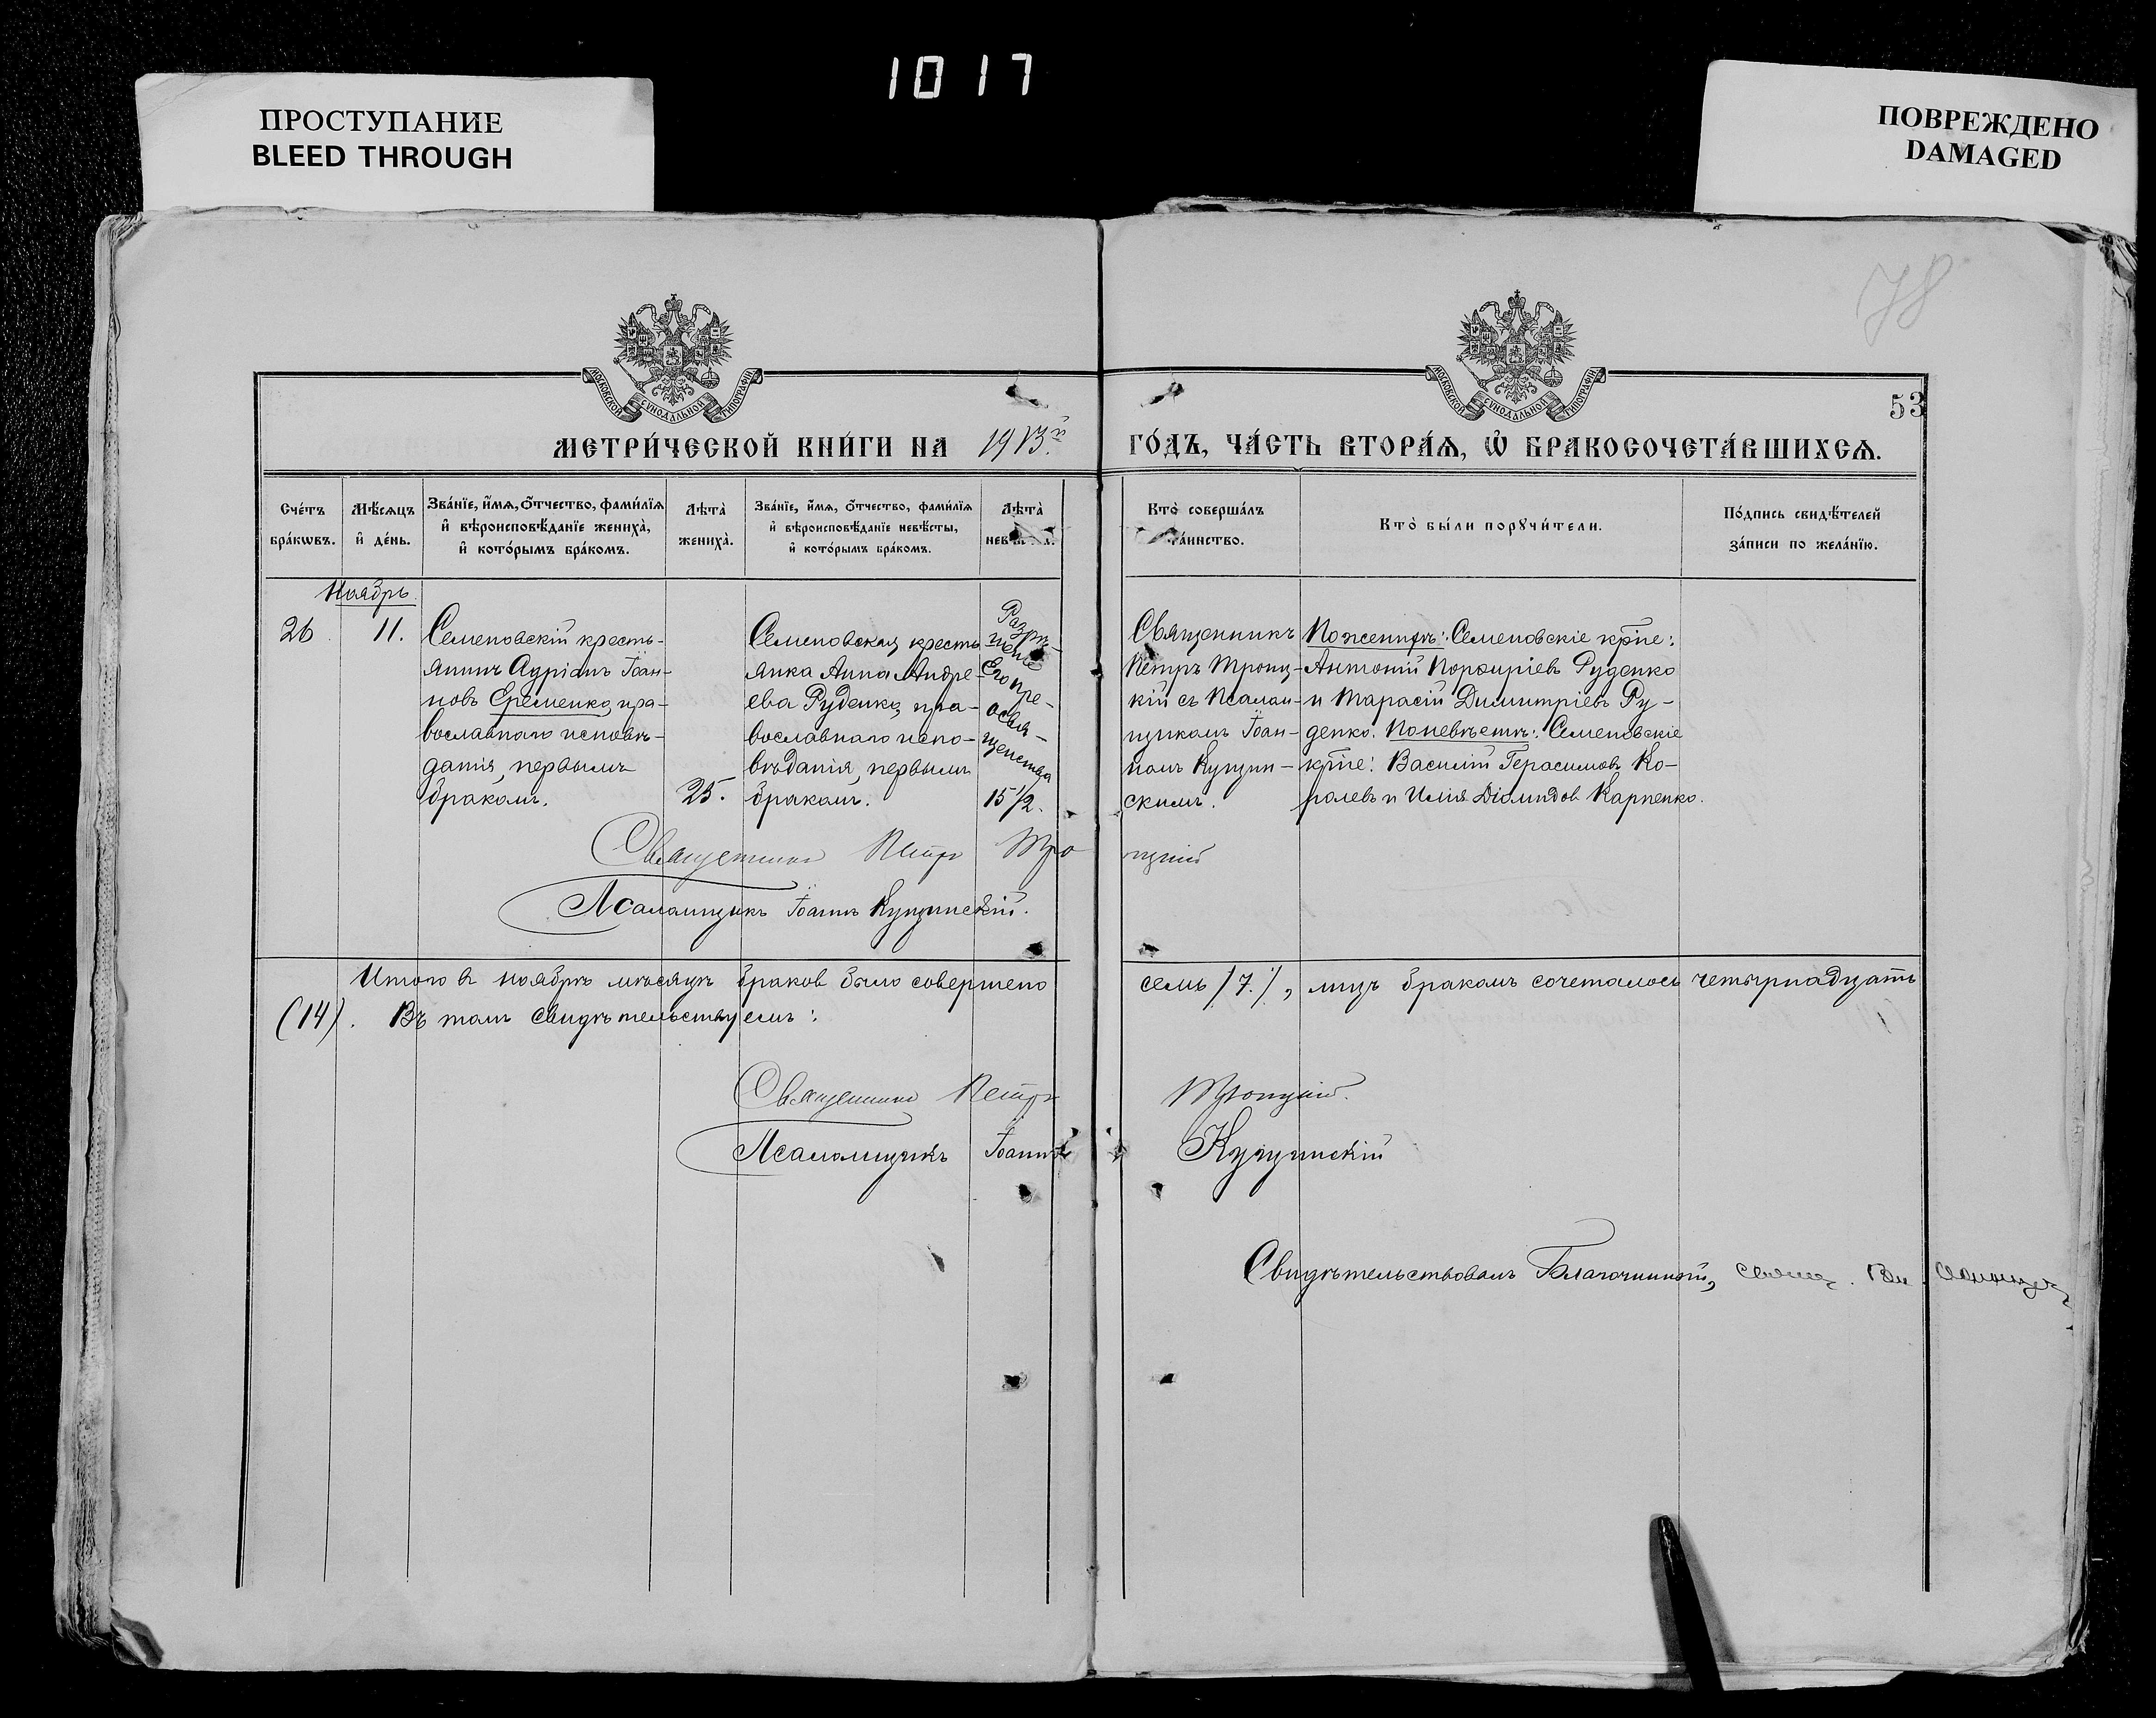 1017
ПРОСТУПАНИЕ
BLEED THROUGH
ПОВРЕЖДЕНО
DAMAGED
78
МОСКОВСКОЙ СѴНОДАЛЬНОЙ ТИПОГРАФІИ
МОСКОВСКОЙ СѴНОДАЛЬНОЙ ТИПОГРАФІИ
53
МЕТРИ́ЧЕСКОЙ КНИ́ГИ НА 1913й ГО́ДЪ, ЧА́СТЬ ВТОРА́Ѧ, Ѡ҆ БРАКОСОЧЕТА́ВШИХСѦ.
Сче́тъ
бра́кѡвъ.
Мѣ́сѧцъ
и҆ де́нь.
Зва́нїе, и҆́мѧ, ѻ҆́тчество, фами́лїѧ
и҆ вѣроисповѣ́данїе жениха̀,
и҆ кото́рымъ бра́комъ.
Лѣта̀
жениха̀.
Зва́нїе, и҆́мѧ, ѻ҆́тчество, фами́лїѧ
и҆ вѣроисповѣ́данїе невѣ́сты,
и҆ кото́рымъ бра́комъ.
Лѣта̀
Кто̀ соверша́лъ
та́инство.
Кто̀ бы́ли порꙋчи́тели.
По́дпись свидѣ́телей
за́писи по жела́нїю.
Ноябрь
26
11.
Семеновскій кресть-
янинъ Адріанъ Іоан-
новъ Еременко, пра-
вославнаго исповѣ-
данія, первымъ
бракомъ.
25.
Семеновская кресть
янка Анна Андре-
ева Руденко, пра-
вославнаго испо-
вѣданія, первымъ
бракомъ.
Разрѣ-
шеніе
Его пре-
освя-
щенства
15 1/2.
Священникъ
Петръ Троиц-
кій съ Псалом-
щикомъ Іоан-
номъ Кущин-
скимъ.
По женихѣ: Семеновскіе кр̃не:
Антоній Порфиріевъ Руденко
и Тарасій Димитріевъ Ру-
денко. По невѣстѣ: Семеновскіе
кр̃не: Василій Герасимовъ Ко-
ролевъ и Илія Діомидовъ Карпенко.
Священникъ Петръ Троицкій
Псаломщикъ Іоаннъ Кущинскій.
Итого въ ноябрѣ мѣсяцѣ браковъ было совершено семь /7./, лицъ бракомъ сочеталось четырнадцать
(14). Въ томъ свидѣтельствуемъ:
Священникъ Петръ Троицкій.
Псаломщикъ Іоаннъ Кущинскій
Свидѣтельствовалъ Благочинный, свящ.